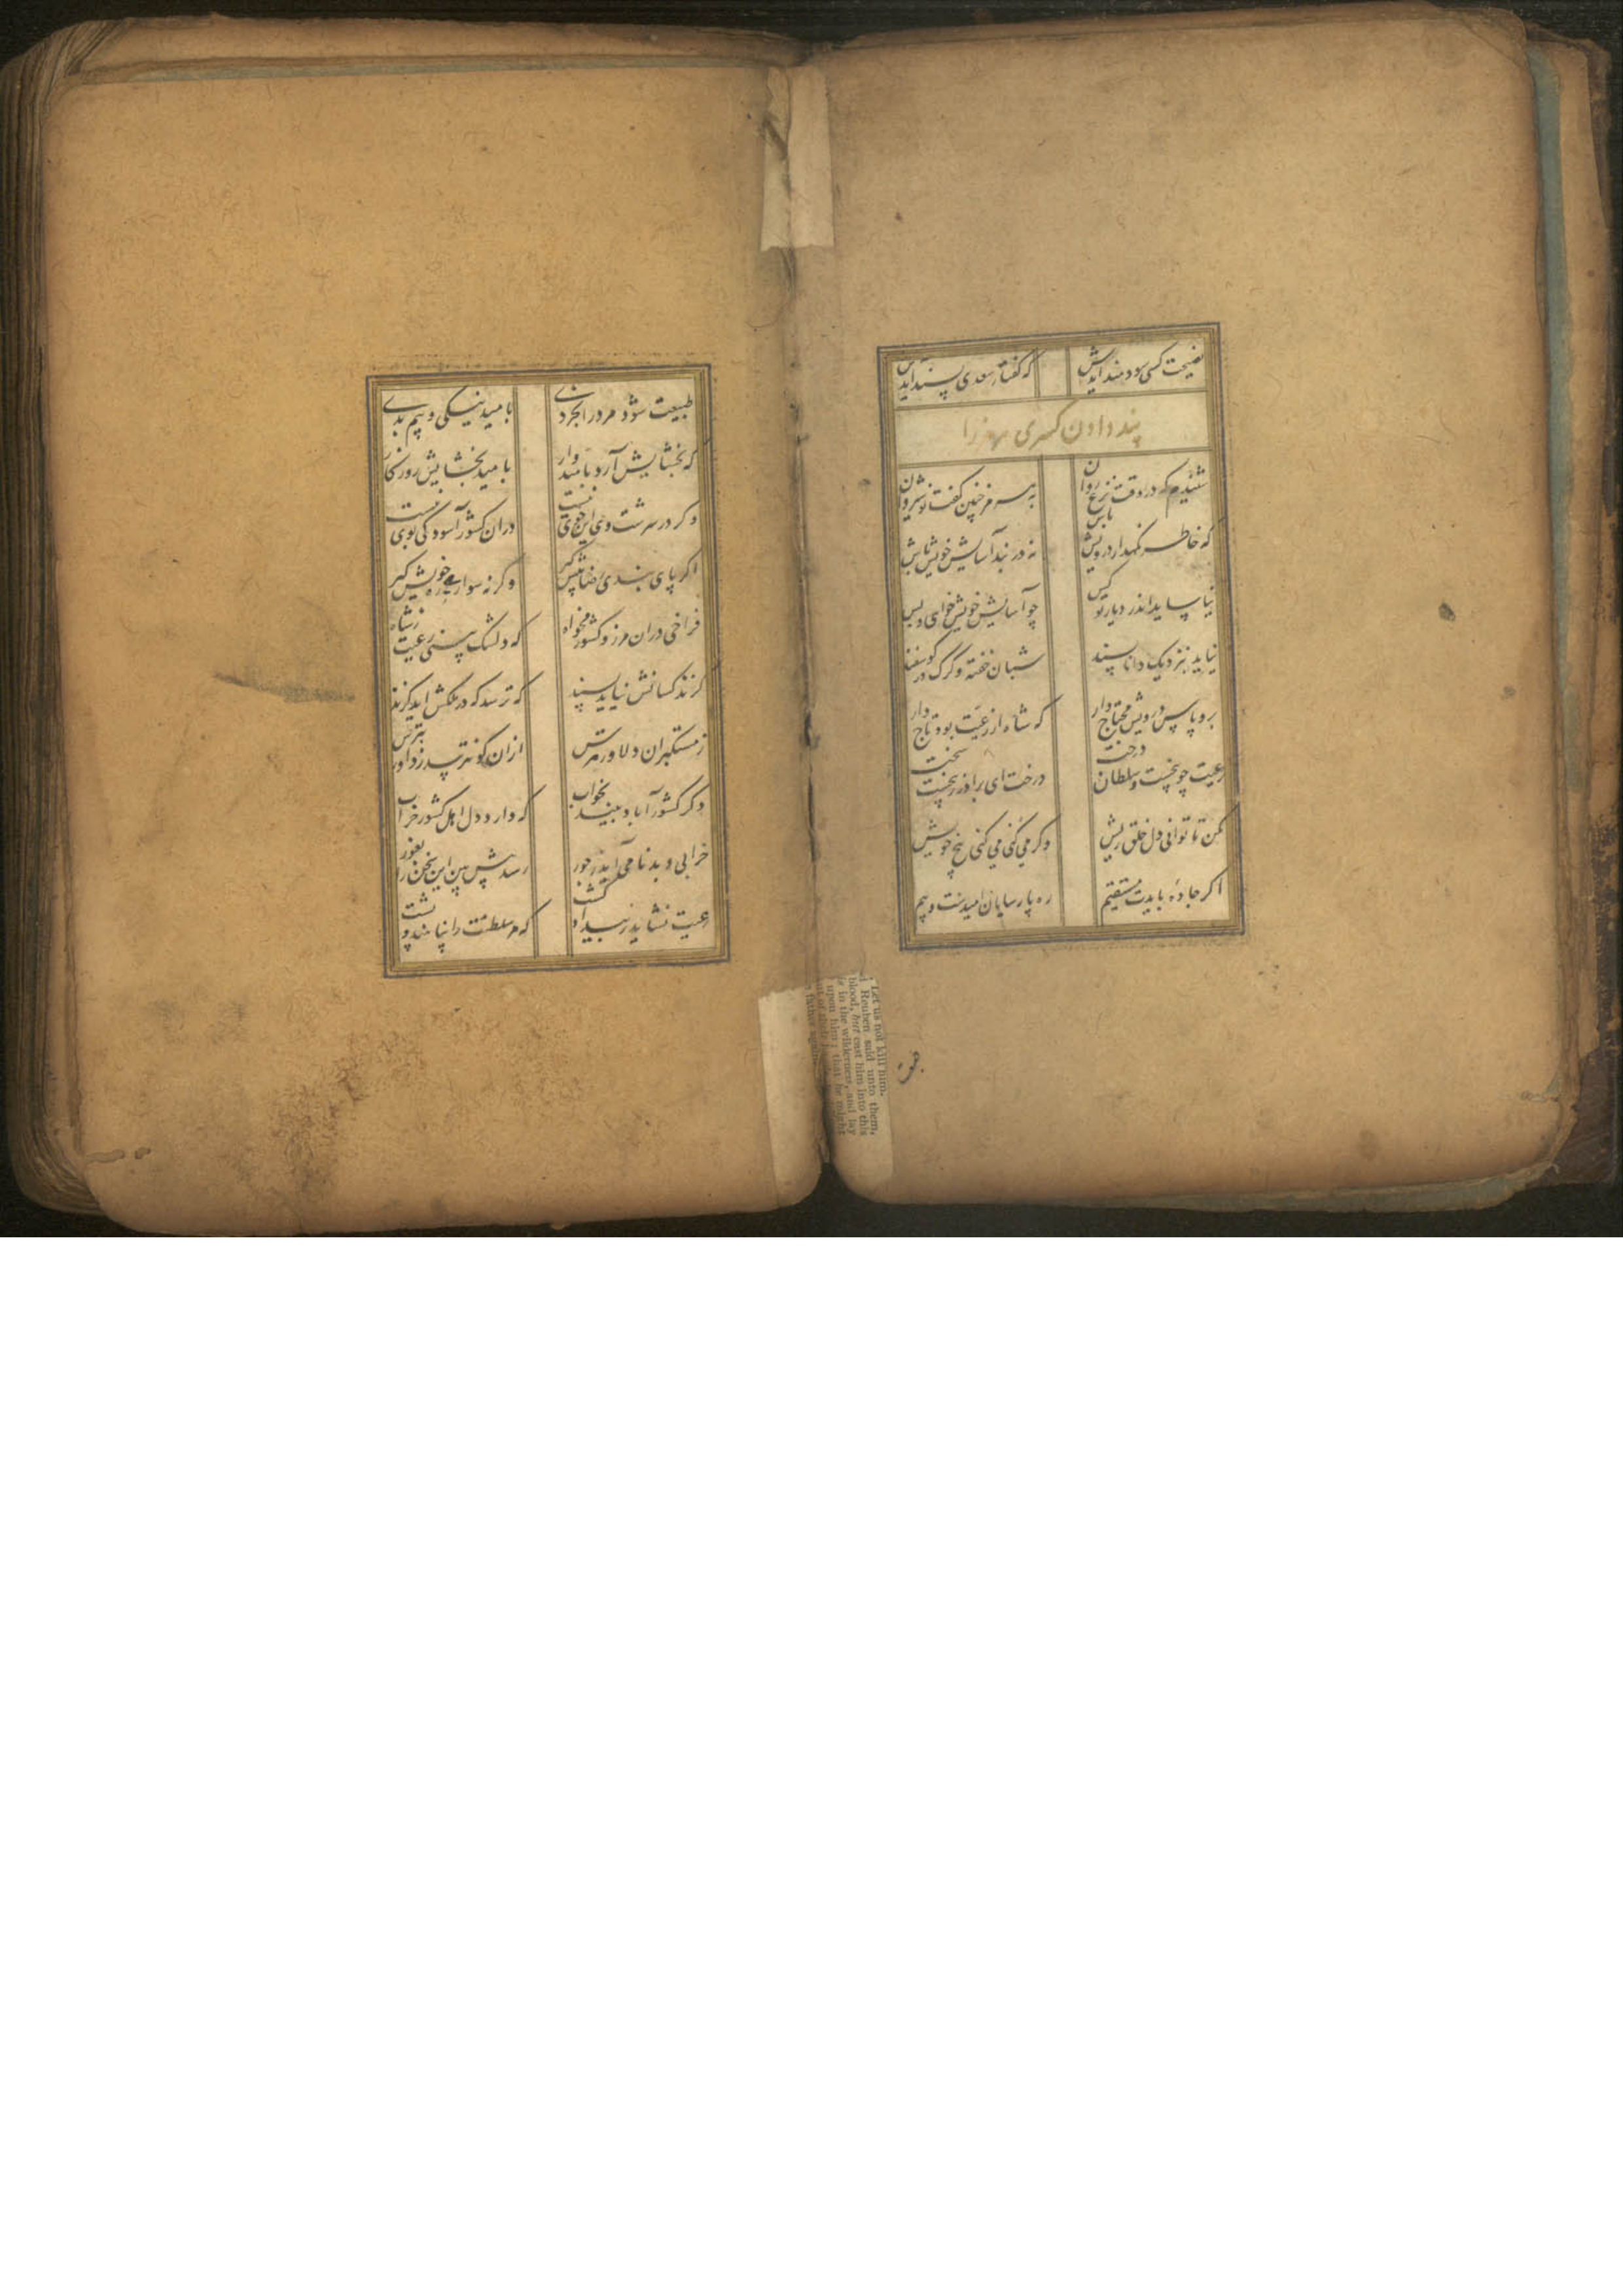 نصیحت کسی سودمند آیدش که کفتار سعدی پسند آیدش
پند دادن کسری هرمز را
شنیدم که در وقت نزع روان به هرمز چنین کفت نوشیروان
که خاطر نکهدار درویش باش نه در بند آسایش خویش باش
نیاساید اندر دیار تو کس چو آسایش خویش خواهی و بس
نیاید بنزدیک دانا پسند شبان خفته و کرک در کوسفند
برو پاس درویش محتاج دار که شاه از رعیت بود تاج دار
رعیت چو بیخست و سلطان درخت درخت ای برادر ز بیخست سخت
مکن تا توانی دل خلق ریش وکر می کنی می کنی بیخ خویش
اکر جادهٔ بایدت مستقیم ره پارسایان امیدست و بیم
طبیعت شود مرد را بخردی بامید نیکی و بیم بدی
که بخشایش آرد بامیدوار بامید بخشایش روزکار
وکر در سرشت وی این خوی نیست در آن کشور آسودکی بوی نیست
اکر پای بندی رضا پیش کیر وکر نه سواری ره خویش کیر
فراخی در آن مرز و کشور مخواه که دلتنک بینی رعیت ز شاه
کزند کسانش نیاید پسند که ترسد که در ملکش آید کزند
ز مستکبران دلاور مترس از آن کو نترسد ز داور بترس
دکر کشور آباد بیند بخواب که دارد دل اهل کشور خراب
خرابی و بدنامی آید ز جور رسد پیش بین این سخن را بغور
رعیت نشاید ز بیداد کشت که مر سلطنت را پناهند و پشت
طبیعت
Let us not kill him.
d Reuben said unto them,
blood, but cast him into this
is in the wilderness, and lay
upon him; that he might
out of their
father again.